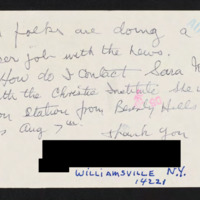 folks are doing a
job with the news.
How do I contact Sara
with the Christie Institute She w
on station from Beverly Hills
s Aug 7th.
Thank you
WILLIAMSVILLE N.Y.
14221